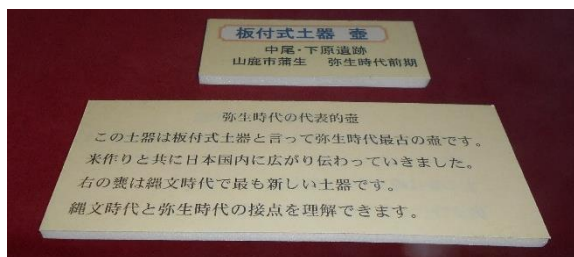 板付式土器　壺
中尾・下原遺跡
山鹿市蒲生　弥生時代前期
弥生時代の代表的壺
この土器は板付式土器と言って弥生時代最古の壺です。
米作りと共に日本国内に広がり伝わっていきました。
右の甕は縄文時代で最も新しい土器です。
縄文時代と弥生時代の接点を理解できます。